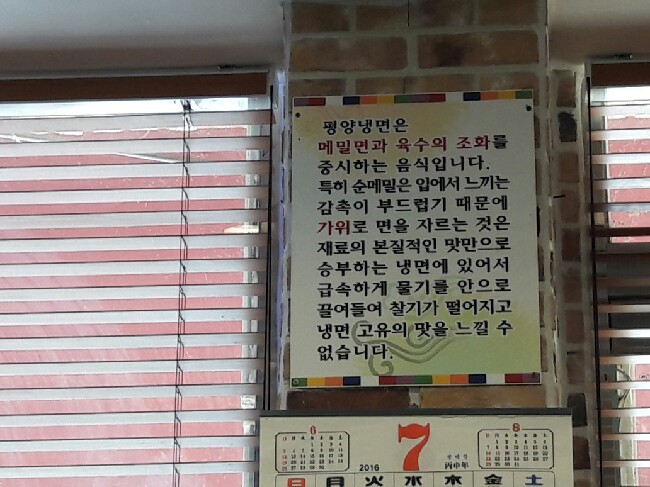 평양냉면은
메밀면과 육수의 조화를
중시하는 음식입니다.
특히 순메밀은 입에서 느끼는
감촉이 부드럽기 때문에
가위로 면을 자르는 것은
재료의 본질적인 맛만으로
승부하는 냉면에 있어서
급속하게 물기를 안으로
끌어들여 찰기가 떨어지고
냉면 고유의 맛을 느낄 수
없습니다.
6 7 8
2016 丙申年
日 月 火 水 木 金 土